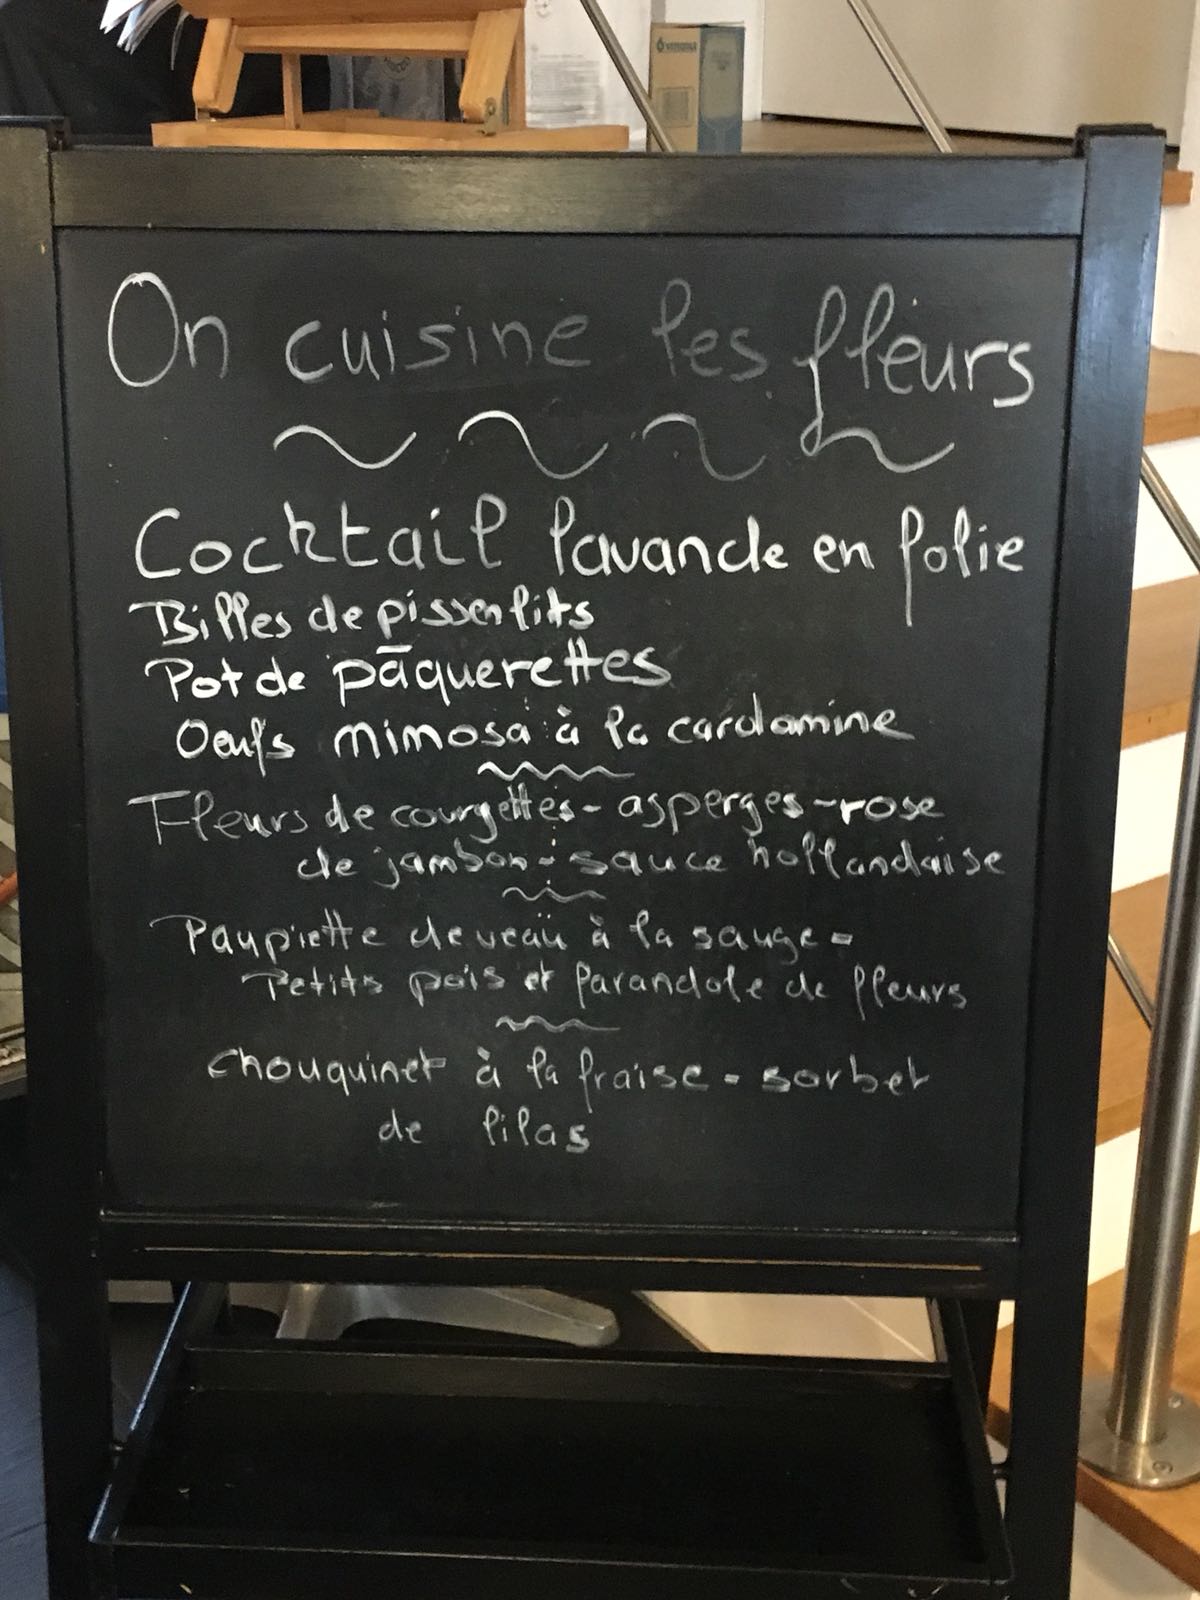 On cuisine les fleurs
Cocktail lavande en folie
Billes de pissenlits
Pot de pâquerettes
Oeufs mimosa à la cardamine
Fleurs de courgettes - asperges - rose
de jambon - sauce hollandaise
Paupiette de veau à la sauge -
Petits pois et farandole de fleurs
Chouquinet à la fraise - sorbet
de lilas